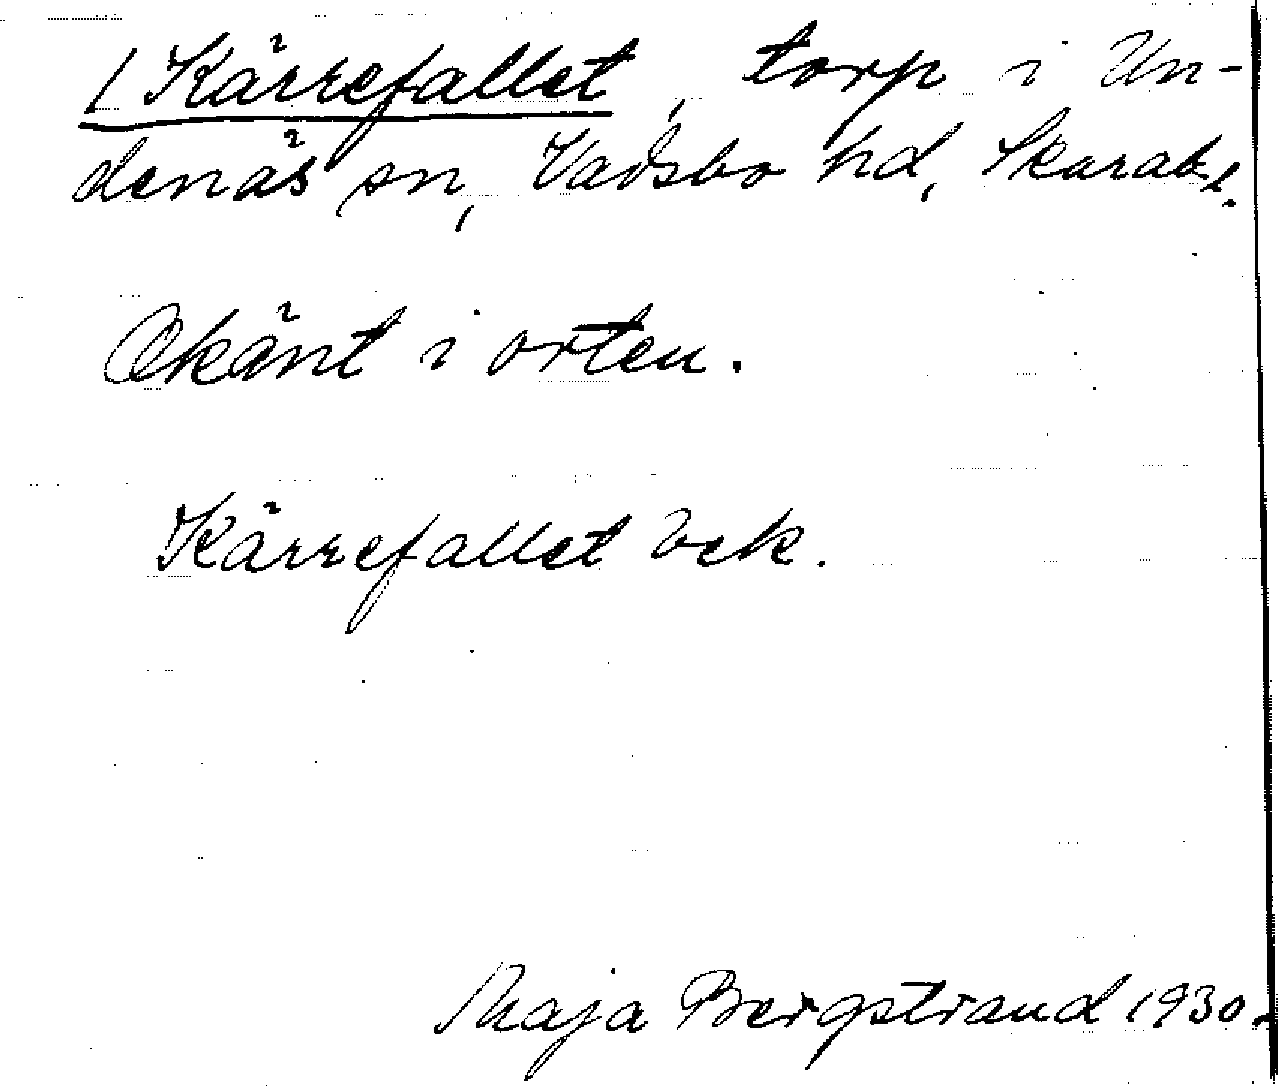 / Kärrefallet, torp i Un-
denäs sn, Vadsbo hd, Skarab. l.
Okänt i orten.
Kärrefallet Bek.
Maja Bergstrand 1930.